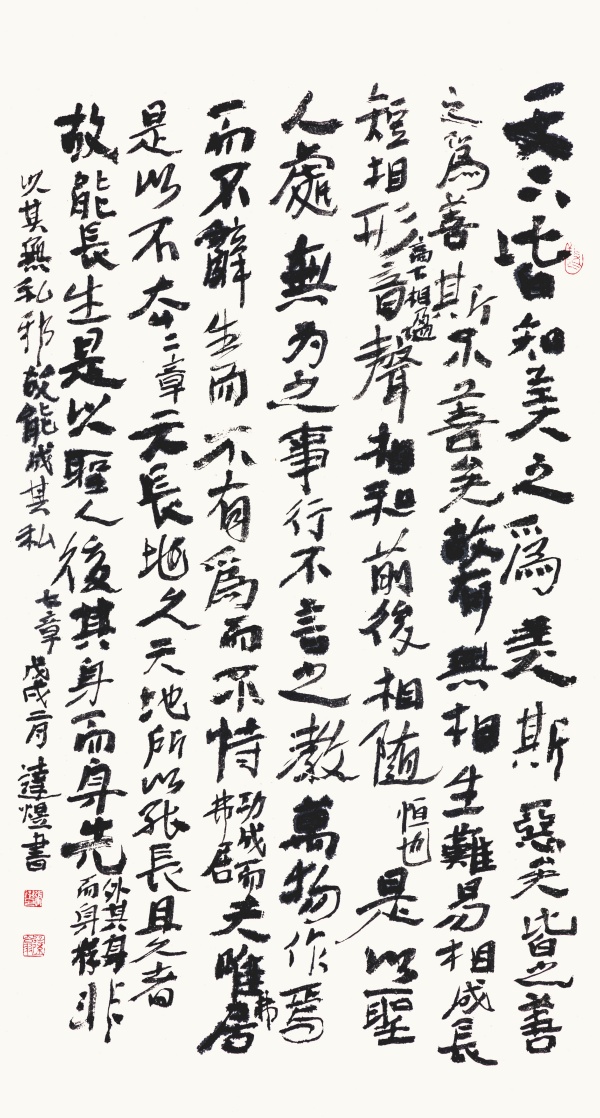 天下皆知美之為美斯惡矣皆知善
之為善斯不善矣故有無相生難易相成長
短相形高下相盈音聲相和前後相隨恒也是以聖
人處無为之事行不言之教萬物作焉
而不辭生而不有為而不恃功成而弗居夫唯弗居
是以不去二章天長地久天地所以能長且久者
故能長生是以聖人後其身而身先外其身而身存非
以其無私邪故能成其私七章戊戌二月達煜書